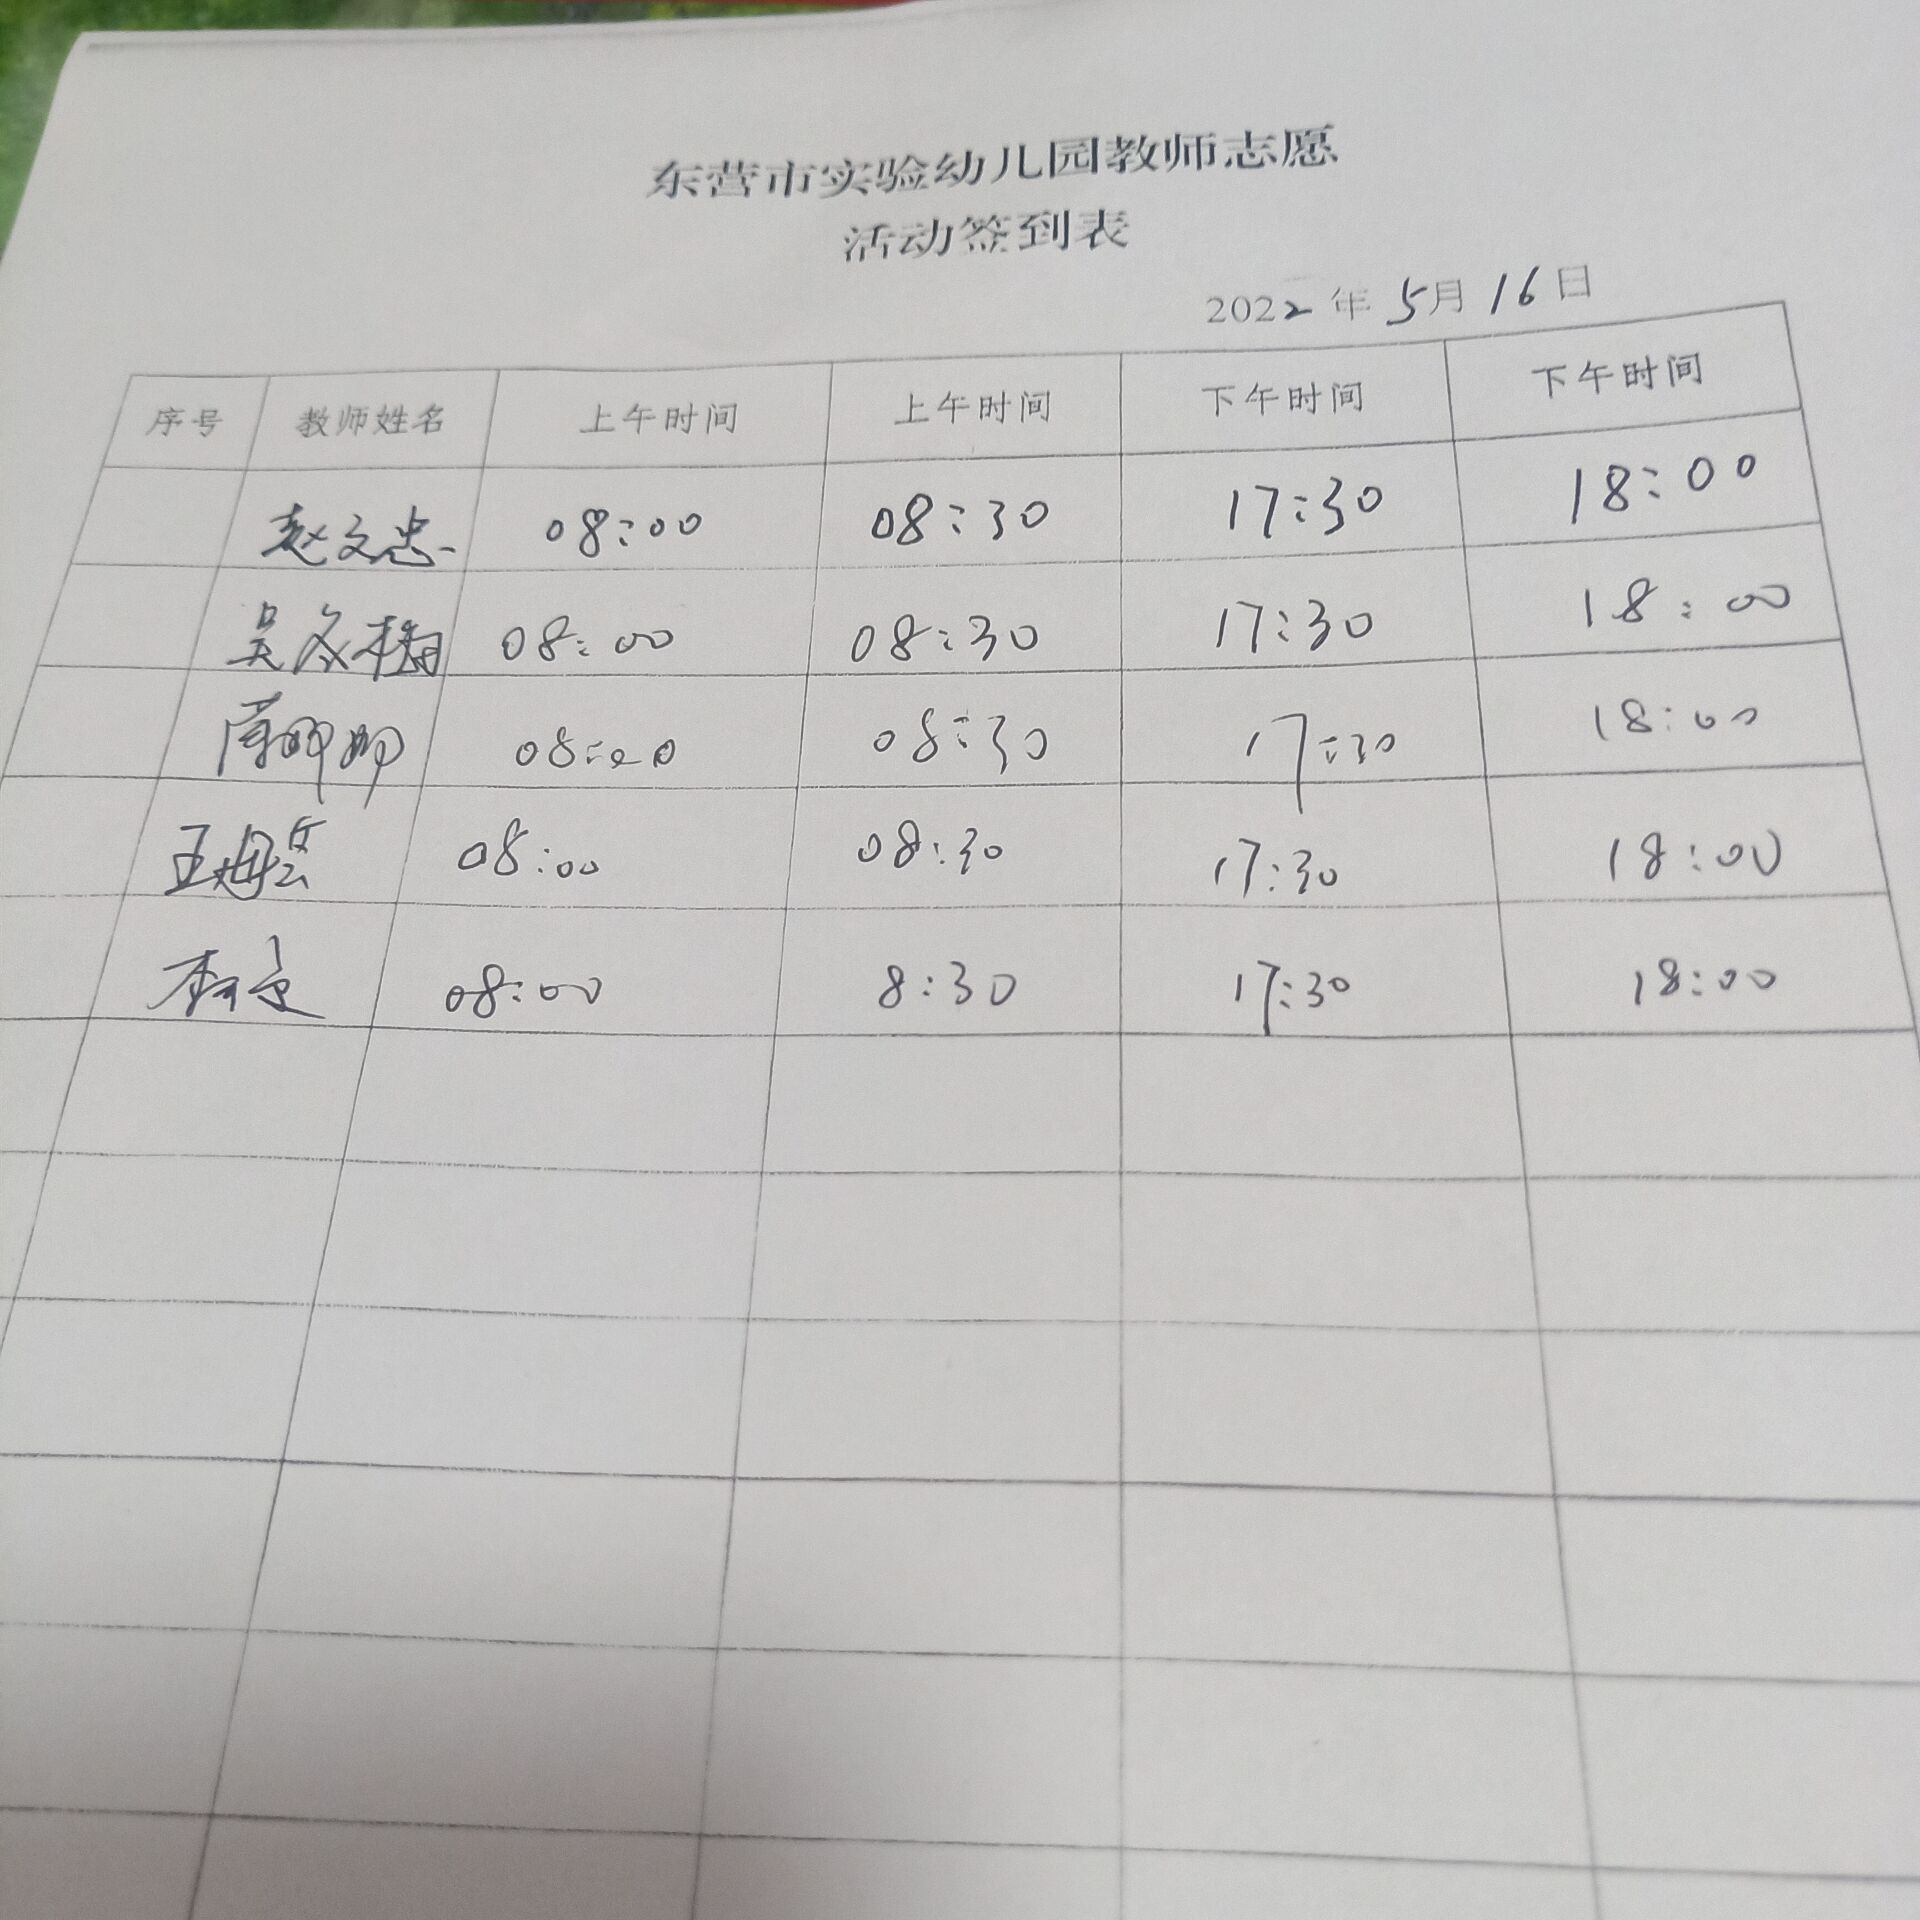 东营市实验幼儿园教师志愿
活动签到表
2022年5月16日
序号 教师姓名 上午时间 上午时间 下午时间 下午时间
赵文忠 08:00 08:30 17:30 18:00
吴冬梅 08:00 08:30 17:30 18:00
08:00 08:30 17:30 18:00
王 08:00 08:30 17:30 18:00
李 08:00 8:30 17:30 18:00